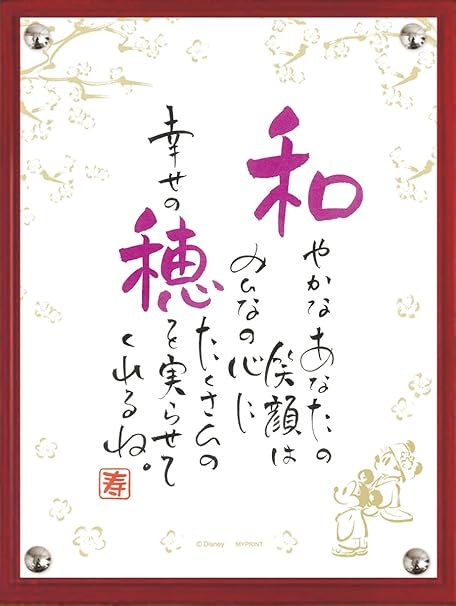 和やかなあなたの
笑顔は
みんなの心に
たくさんの
幸せの穂を実らせて
くれるね。
寿
© Disney MYPRINT